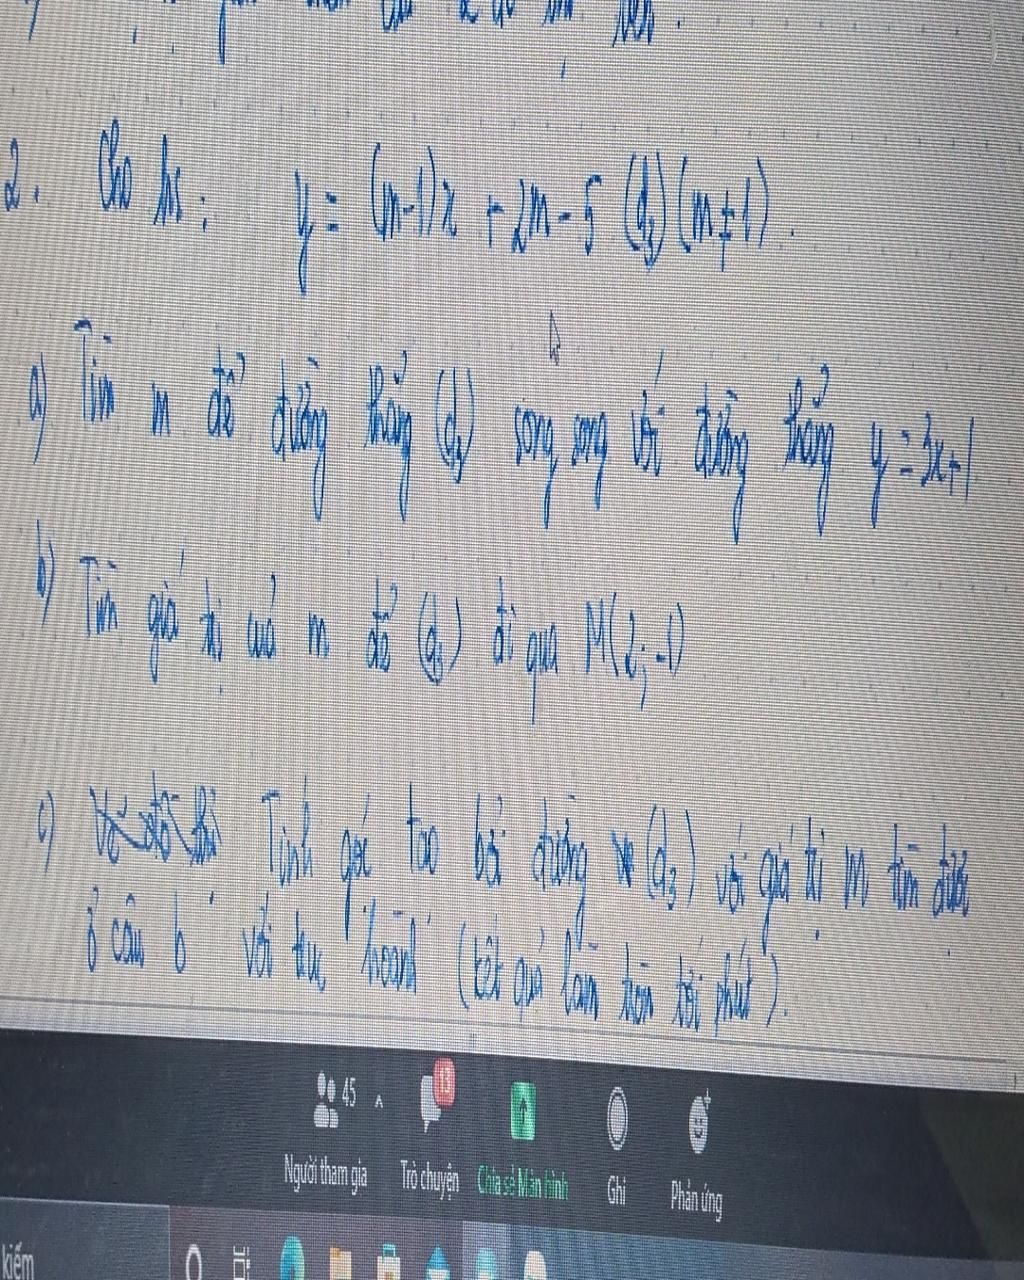 2. Cho hs: y = (m-1)x + 2m - 5 (d₃) (m ≠ 1).
a) Tìm m để đường thẳng (d₃) song song với đường thẳng y = 3x+1
b) Tìm giá trị của m để (d₃) đi qua M(2; -1)
c) Vẽ đồ thị Tính góc tạo bởi đường (d₃) với giá trị m tìm được
ở câu b với trục hoành (kết quả làm tròn tới phút).
45
13
Người tham gia Trò chuyện Chia sẻ Màn hình Ghi Phản ứng
kiếm